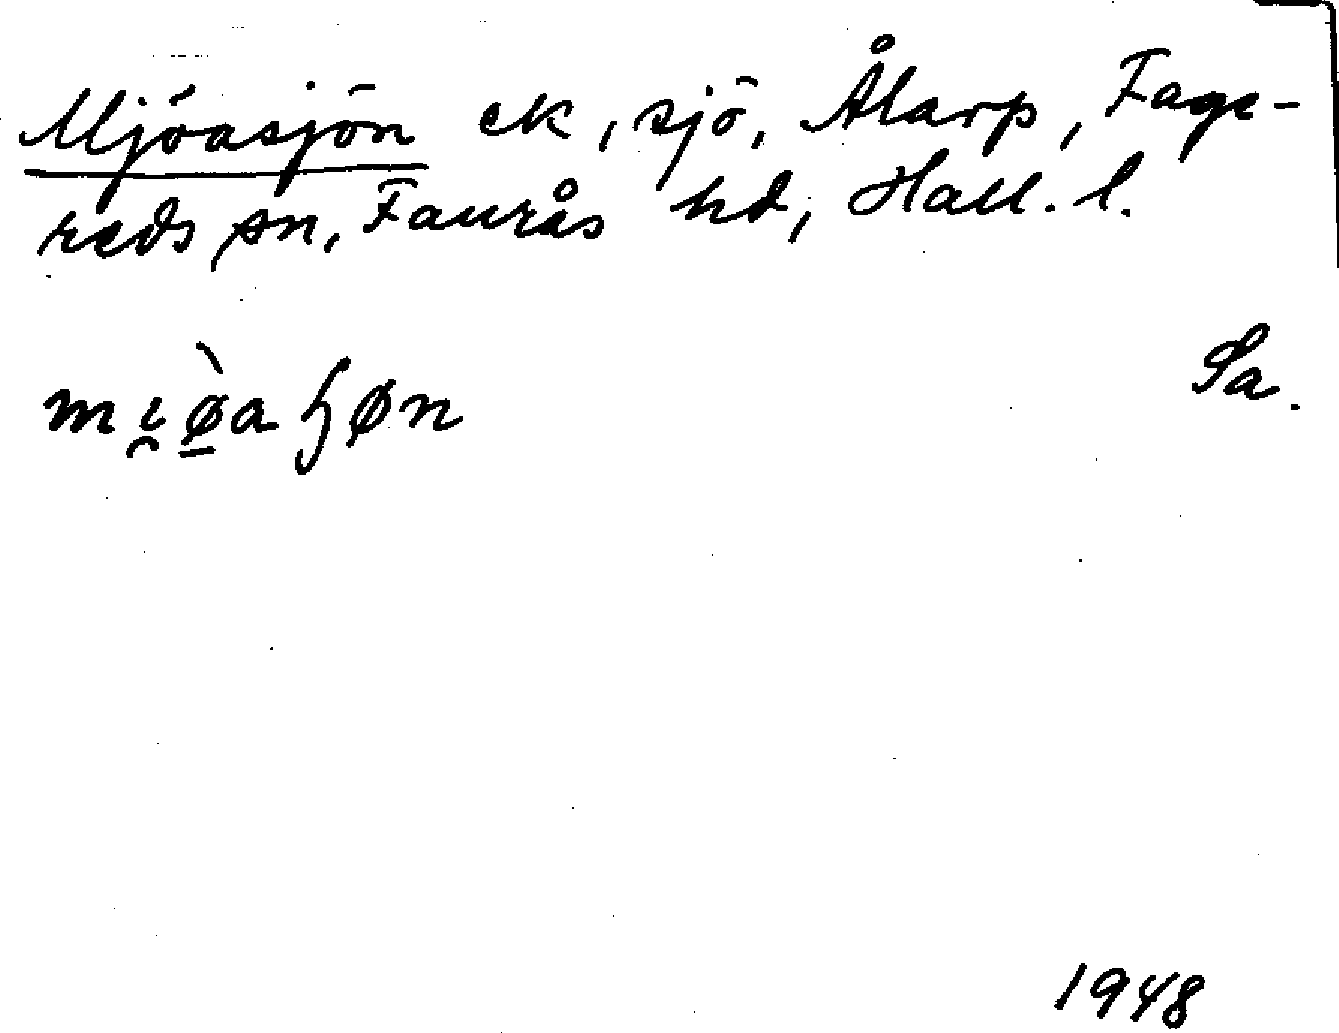 Mjöasjön ek, sjö, Ålarp, Fage-
reds sn, Faurås hd, Hall. l.
Sa.
mi̯ø̱̀aɧøn
1948